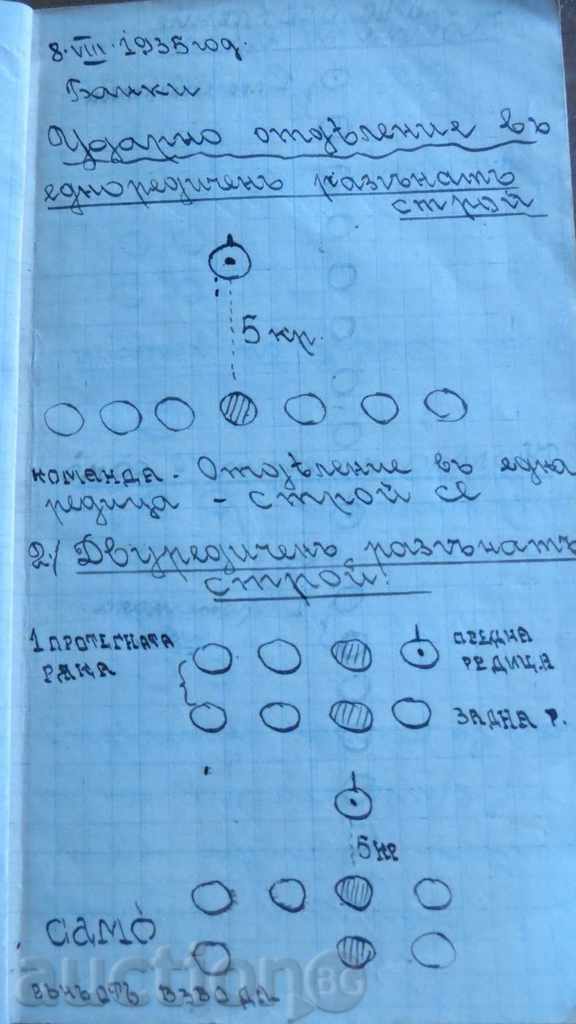 8.VIII.1935 год.
Банки
Ударно отдѣление въ
едноредиченъ развънатъ
строй
5 кр.
команда - Отдѣление въ една
редица - строй се
2./ Двуредиченъ развънатъ
строй!
1 ПРОТЕГНАТА
РѪКА
ПРЕДНА
РЕДИЦА
ЗАДНА Р.
5 кр
САМО
ВЗВОДА
auctionBG